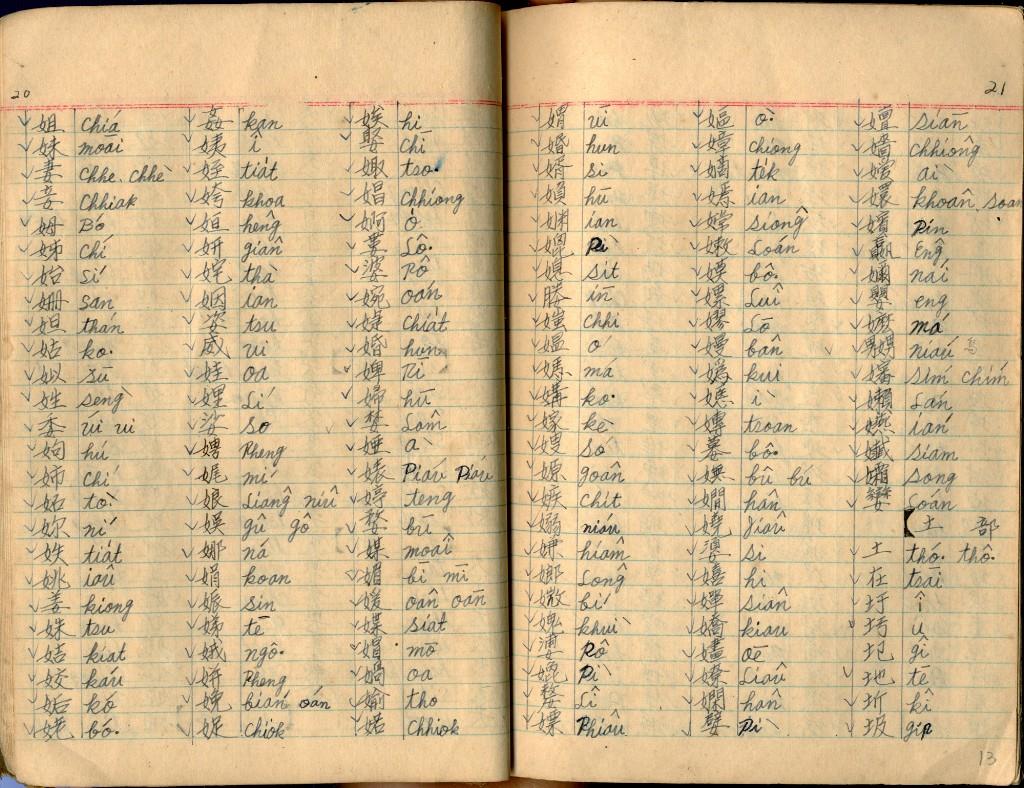 20
姐 chiá
妹 moāi
妻 chhe. chhè
妾 chhiak
姆 Bó
姊 chí
始 sí
姍 san
妲 thán
姑 ko·
姒 sū
姓 sèng
委 úi ui
姁 hú
姉 chí
妬 tò
妳 ní
妷 tiát
姚 iâu
姜 kiong
姝 tsu
姞 kiat
姣 káu
姤 kò
姥 bó·
姦 kan
姨 î
姪 tiát
姱 khoa
姮 hêng
妍 giân
姹 thà
姻 ian
姿 tsu
威 ui
娃 oa
娌 Lí
娑 so
娉 Pheng
娓 mí
娘 Liâng niû
娛 gû gô
娜 ná
娟 koan
娠 sin
娣 tē
娥 ngô·
姘 Pheng
娩 bián oán
娖 chiok
娭 hi
娶 chī
娵 tso·
娼 chhiong
婀 ò
婁 Lô·
婆 Pô
婉 oán
婕 chiat
婚 hun
婢 Pī
婦 hū
婪 Lâm
婭 à
婊 Piáu Piáu
婷 têng
婺 bū
媒 moâi
媚 bī mī
媛 oân oān
媟 siat
媢 mō
媧 oa
媮 tho
婼 chhiok
21
媦 ūi
婚 hun
婿 sì
媍 hū
媩 ian
媲 Pì
媳 sit
媵 īn
媸 chhi
媼 ó
媽 má
媾 ko·
嫁 kè
嫂 só
嫄 goân
嫉 chit
嫋 niáu
嫌 hiâm
嫏 Lông
媺 bí
媿 khuì
婆 Pô
媲 Pì
嫠 Lî
嫖 Phiâu
嫗 ò·
嫜 chiong
嫡 tek
嫣 ian
嫦 siông
嫩 Loán
嫫 bô·
嫘 Luî
嫪 Lō
嫚 bān
嬀 kui
嫕 ì
嫥 tsoan
慕 bō·
嫵 bû bú
嫺 hân
嬈 Jiâu
凄 si
嬉 hi
嬋 siân
嬌 kiau
嫿 oē
嫽 Liâu
嫻 hân
嬖 Pì
嬗 siān
嬙 chhiông
嬡 ài
嬛 khoân soan
嬪 Pîn
嬴 Êng
嬭 nái
嬰 eng
嬤 má
嬲 niáu 鳥
嬸 sím chím
嬾 Lán
嬿 iàn
孅 siam
孀 song
孌 Loán
土 部
土 thó· thô·
在 tsāi
圩 î
圬 u
圯 gî
地 tē
圻 kî
圾 gip
13